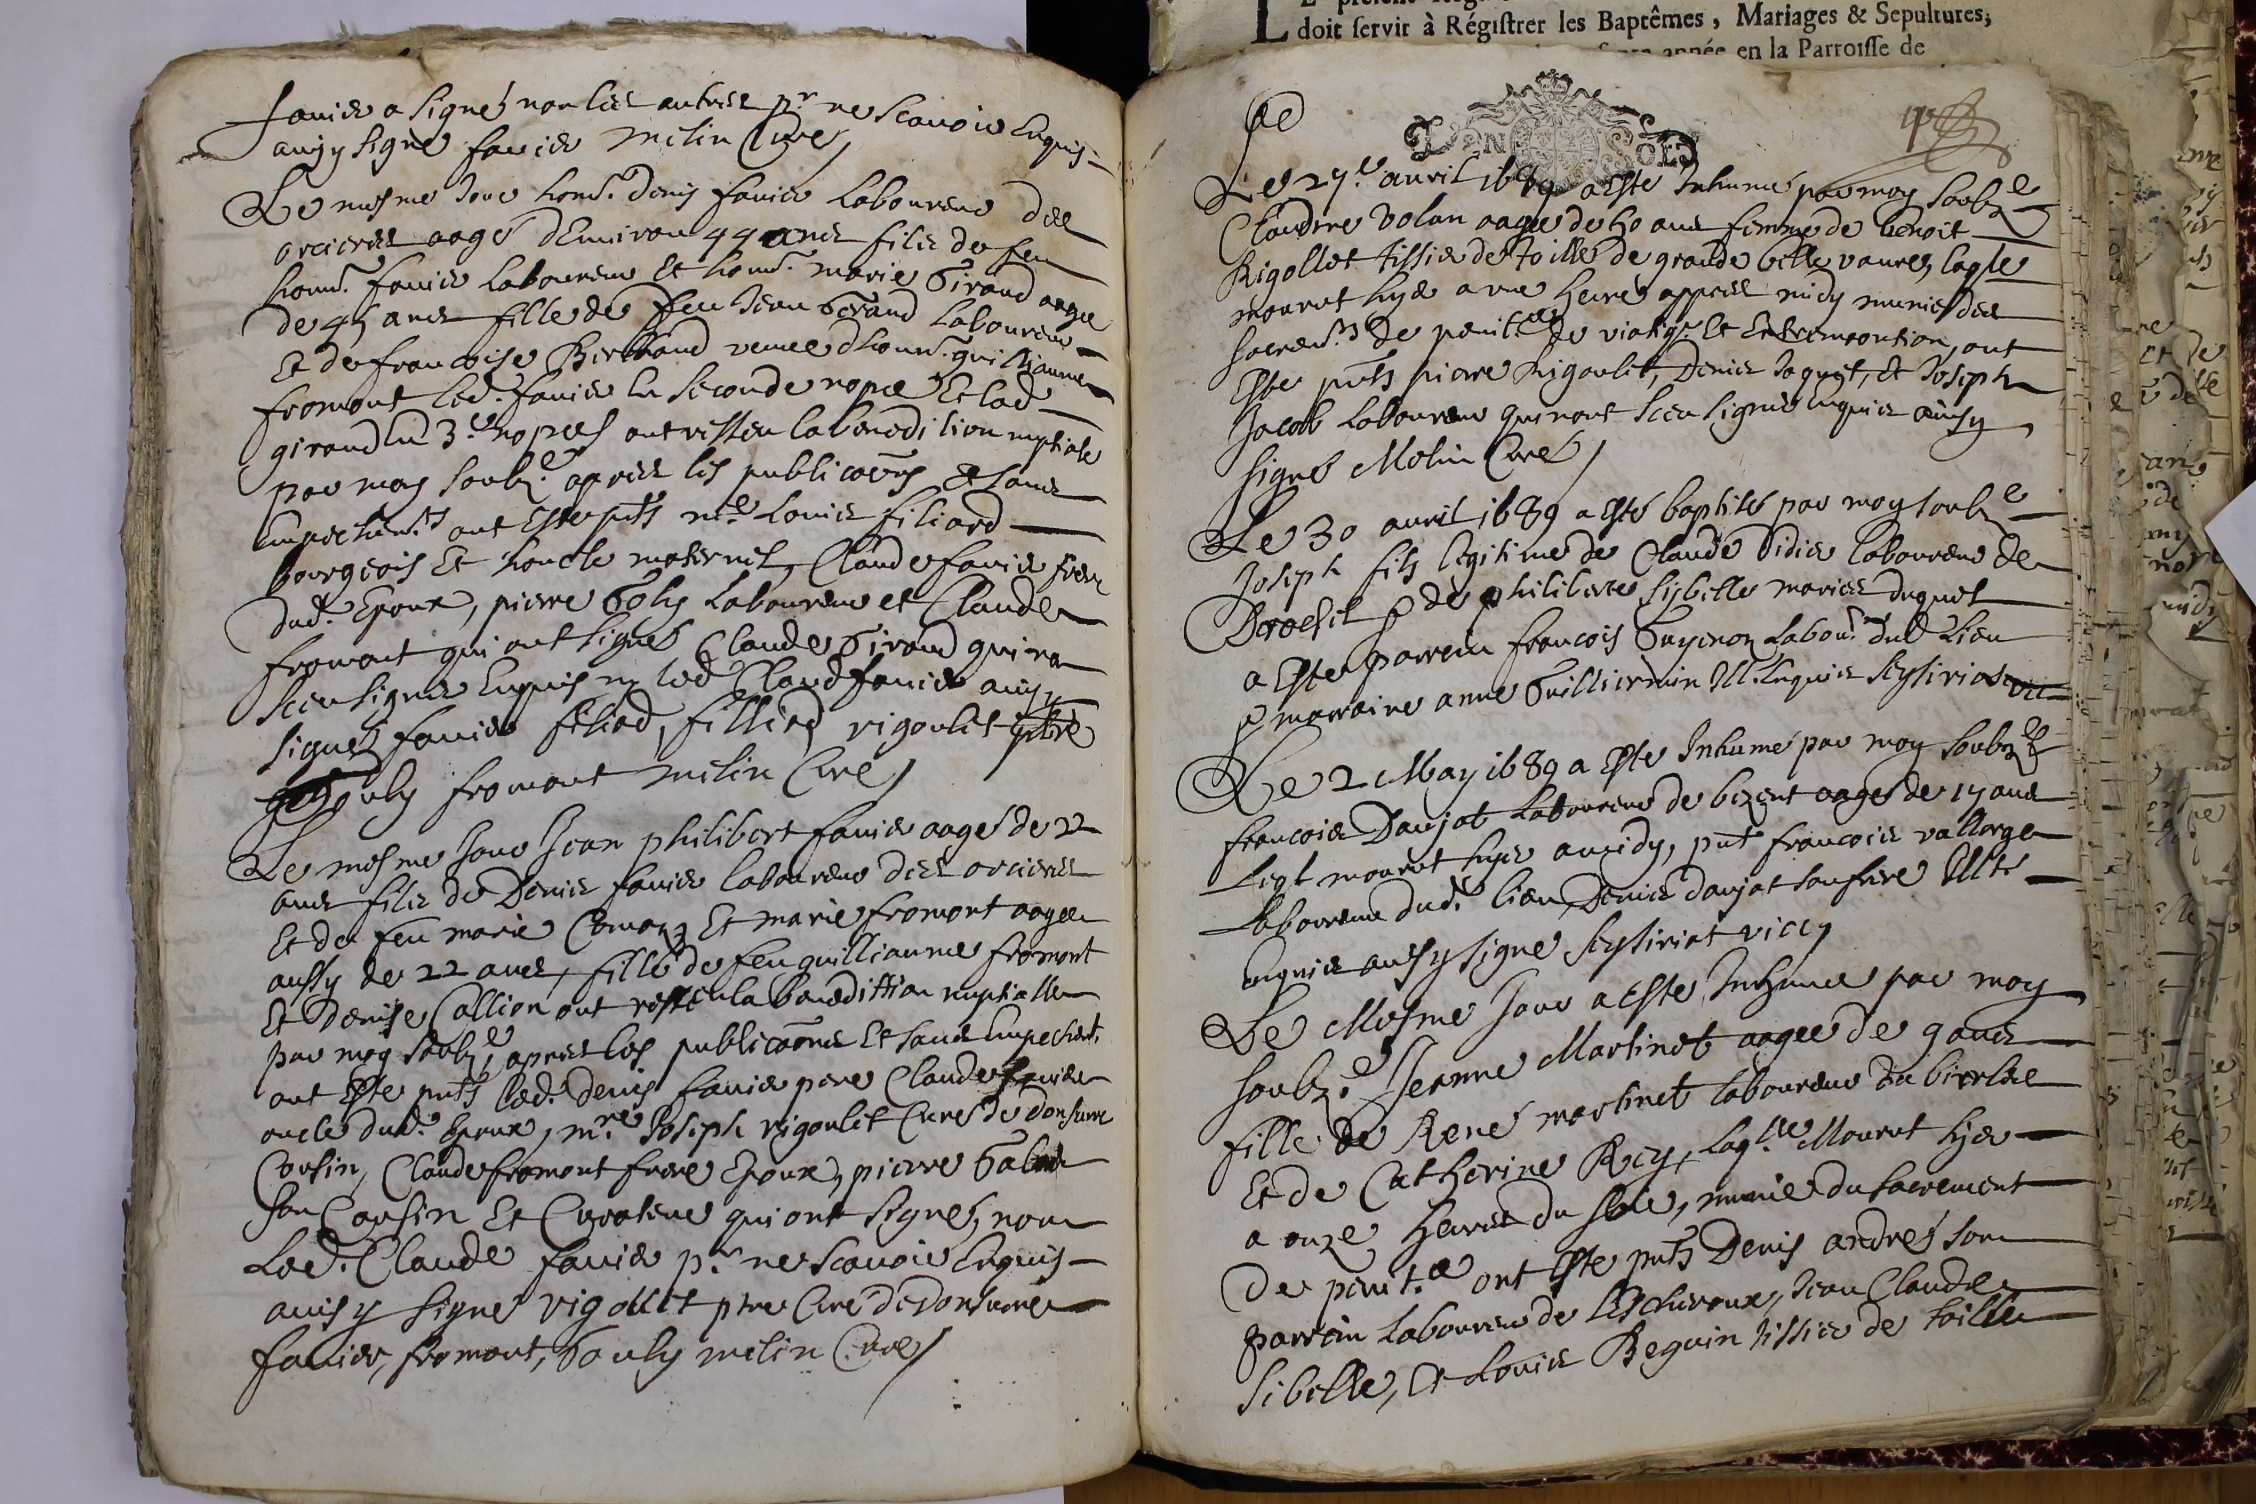 favier a signé non les autres pr ne scavoir enquis
ainsy signé favier melin Curé
Le mesme jour honn. denis favier laboureur des
orcieres aagé d'environ 44 ans filz de feu
honn. favier laboureur et honn. marie Giraud aagee
de 45 ans fille de feu Jean Geraud laboureur
Et de francoise Bertrand veuve d'honn. guillianme
fromont led. favier en seconde nopce Et lad
giraud en 3.e nopces ont receu la benedition nuptiale
par moy soubz.e apres les publica͠ons et sans
empechem.ts ont este pnts m.e Louis filiard
bourgeois Et honcle maternel, Claude favier frere
dud. Epoux, pierre Goly laboureur et Claude
fromont qui ont signé Claude Giraud qui na
sceu signer enquis ny led Claud favier ainsy
signez favier filiad, filliard rigoulet ptre
gouly fromont melin Curé
Le mesme jour Jean philibert favier aagé de 22
ans filz de Denis favier laboureur des orcieres
Et de feu marie Et marie fromont aagee
aussy de 22 ans, fille de feu guillianme fromont
Et denise Callion ont receu la benedittion nuptialle
par moy soubz.e apres les publica͠ons et sans empechent.
ont este pnts led. denis favier pere Claude favier
oncle dud. Epoux, m.re Joseph rigoulet Curé de donsurre
Cousin, Claude fromont frere Epoux, pierre
son Cousin Et Curateur qui ont signez, non
Led. Claude favier p.r ne scavoir enquis
ainsy signé rigollet ptre Curé de donsurre
favier, fromont, Gouly melin Curé
L
doit servir à Régistrer les Baptêmes, Mariages & Sepultures,
année en la Parroisse de
DEN SOLS
Le 27.e avril 1689 a esté Inhumé par moy soubz.e
Claudine Volan aagee de 40 ans femme de benoit
Rigollet tissier de toille de grande ville vaure, laqle
mourut hyer a une heure appres midy munie des
sacrem.ts de penit.ce de viatiqe Et Extremontion, ont
Este pnts pierre Rigoulet, Denis Joquet, Et Joseph
Jacob laboureur qui nont sceu signer enquis ainsy
signé Melin Curé
Le 30 avril 1689 a esté baptisé par moy soubz.e
Joseph filz legitime de Claude Didier laboureur de
& de philiberte Sybelle mariez duquel
a este parrein francois Guyenon labou.r dud lieu
& marraine anne Guilliermin Ill. enquis Seytiriat vic
Le 2 May 1689 a este Inhumé par moy soubz.e
francois Danjat laboureur de bezent aagé de 17 ans
Leql mourut hyer a midy, pnt francois vallorge
laboureur dud. lieu, Denis danjat son frere Illt.
enquis ainsy signé Seytiriat vic
Le Mesme jour a este Inhumé par moy
soubz.e Jeanne Martinet aagee de 9 ans
fille de René martinet laboureur du
Et de Catherine Rey, laq.lle Mourut hyer
a onze heures du soir, munie du sacrement
de penit.ce ont este pnts Denis andre son
parrein laboureur de Lescheroux, Jean Claude
Sibelle, Et Louis Beguin tissier de toille